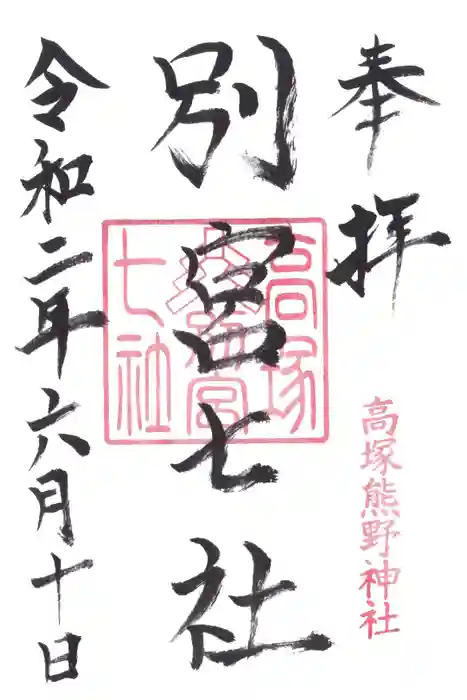 奉拝
高塚熊野神社
別宮七社
高塚
宮
七社
令和二年六月十日